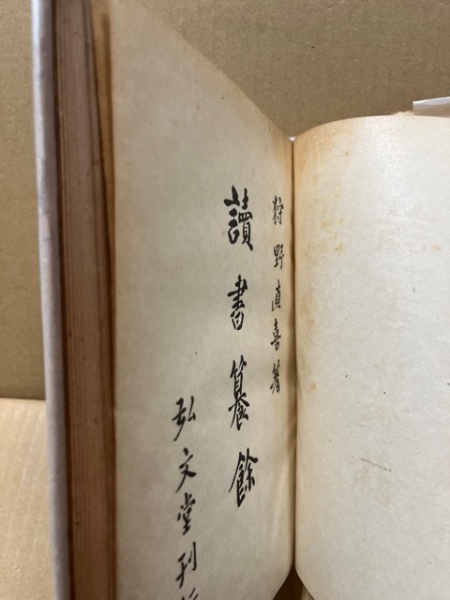 狩野直喜著
讀書纂餘
弘文堂刊